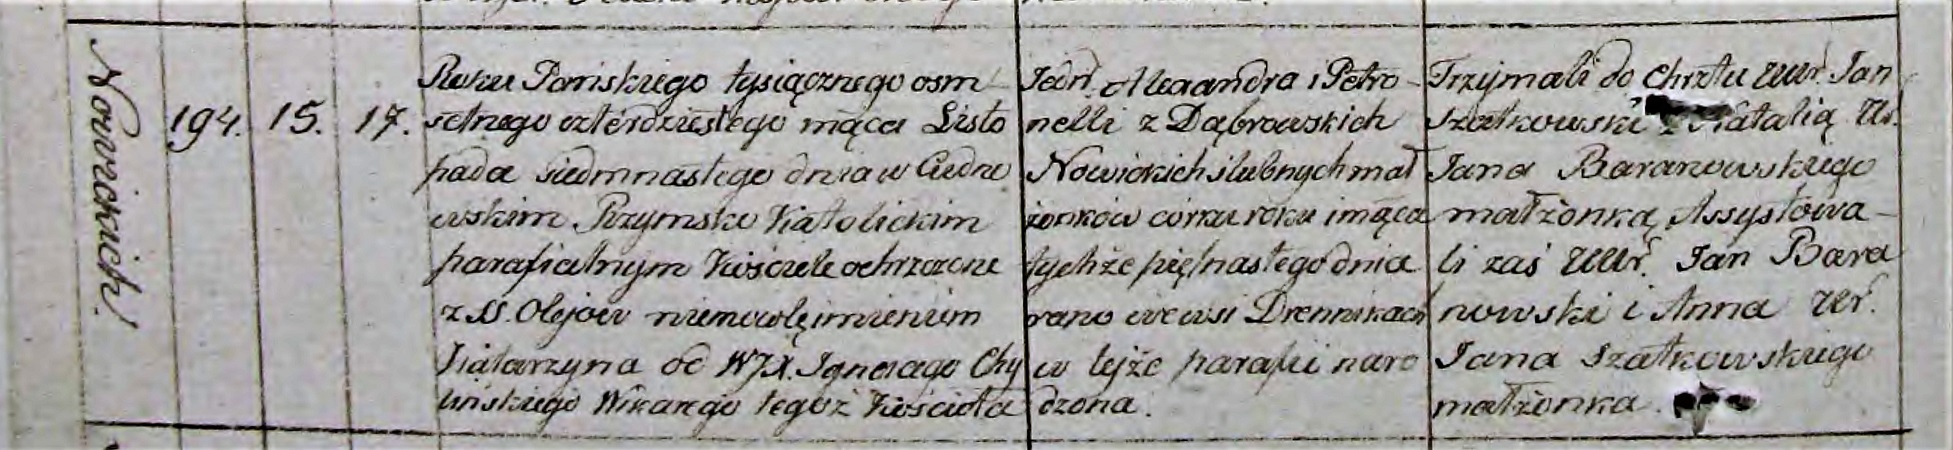 Nowickich.
194. 15. 17.
Roku Pańskiego tysiącznego osm
setnego czterdziestego mąca Listo
pada siedmnastego dnia w Cudno
wskim Rzymsko Katolickim
parafialnym Kościele ochrzczone
z SS. Olejow niemowlę imieniem
Katarzyna od WJX. Ignacego Chy
lińskiego Wikarego tegoż Kościoła
Jedn. Alexandra i Petro-
nelli z Dąbrowskich
Nowickich ślubnych mał
żonków córka roku i mąca
tychże piętnastego dnia
rano we wsi Drennikach
w tejże parafii naro
dzona.
Trzymali do Chrztu UUr. Jan
Szatkowski z Natalią Ur.
Jana Baranowskiego
małżonką, Assystowa-
li zaś UUr. Jan Bara
nowski i Anna Ur.
Jana Szatkowskiego
małżonka.